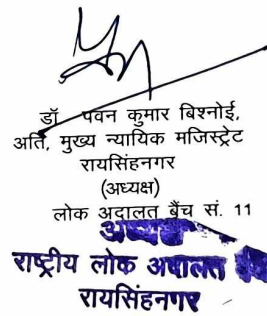 डॉ. पवन कुमार बिश्नोई,
अति, मुख्य न्यायिक मजिस्ट्रेट
रायसिंहनगर
(अध्यक्ष)
लोक अदालत बैंच सं. 11
अध्यक्ष
राष्ट्रीय लोक अदालत
रायसिंहनगर